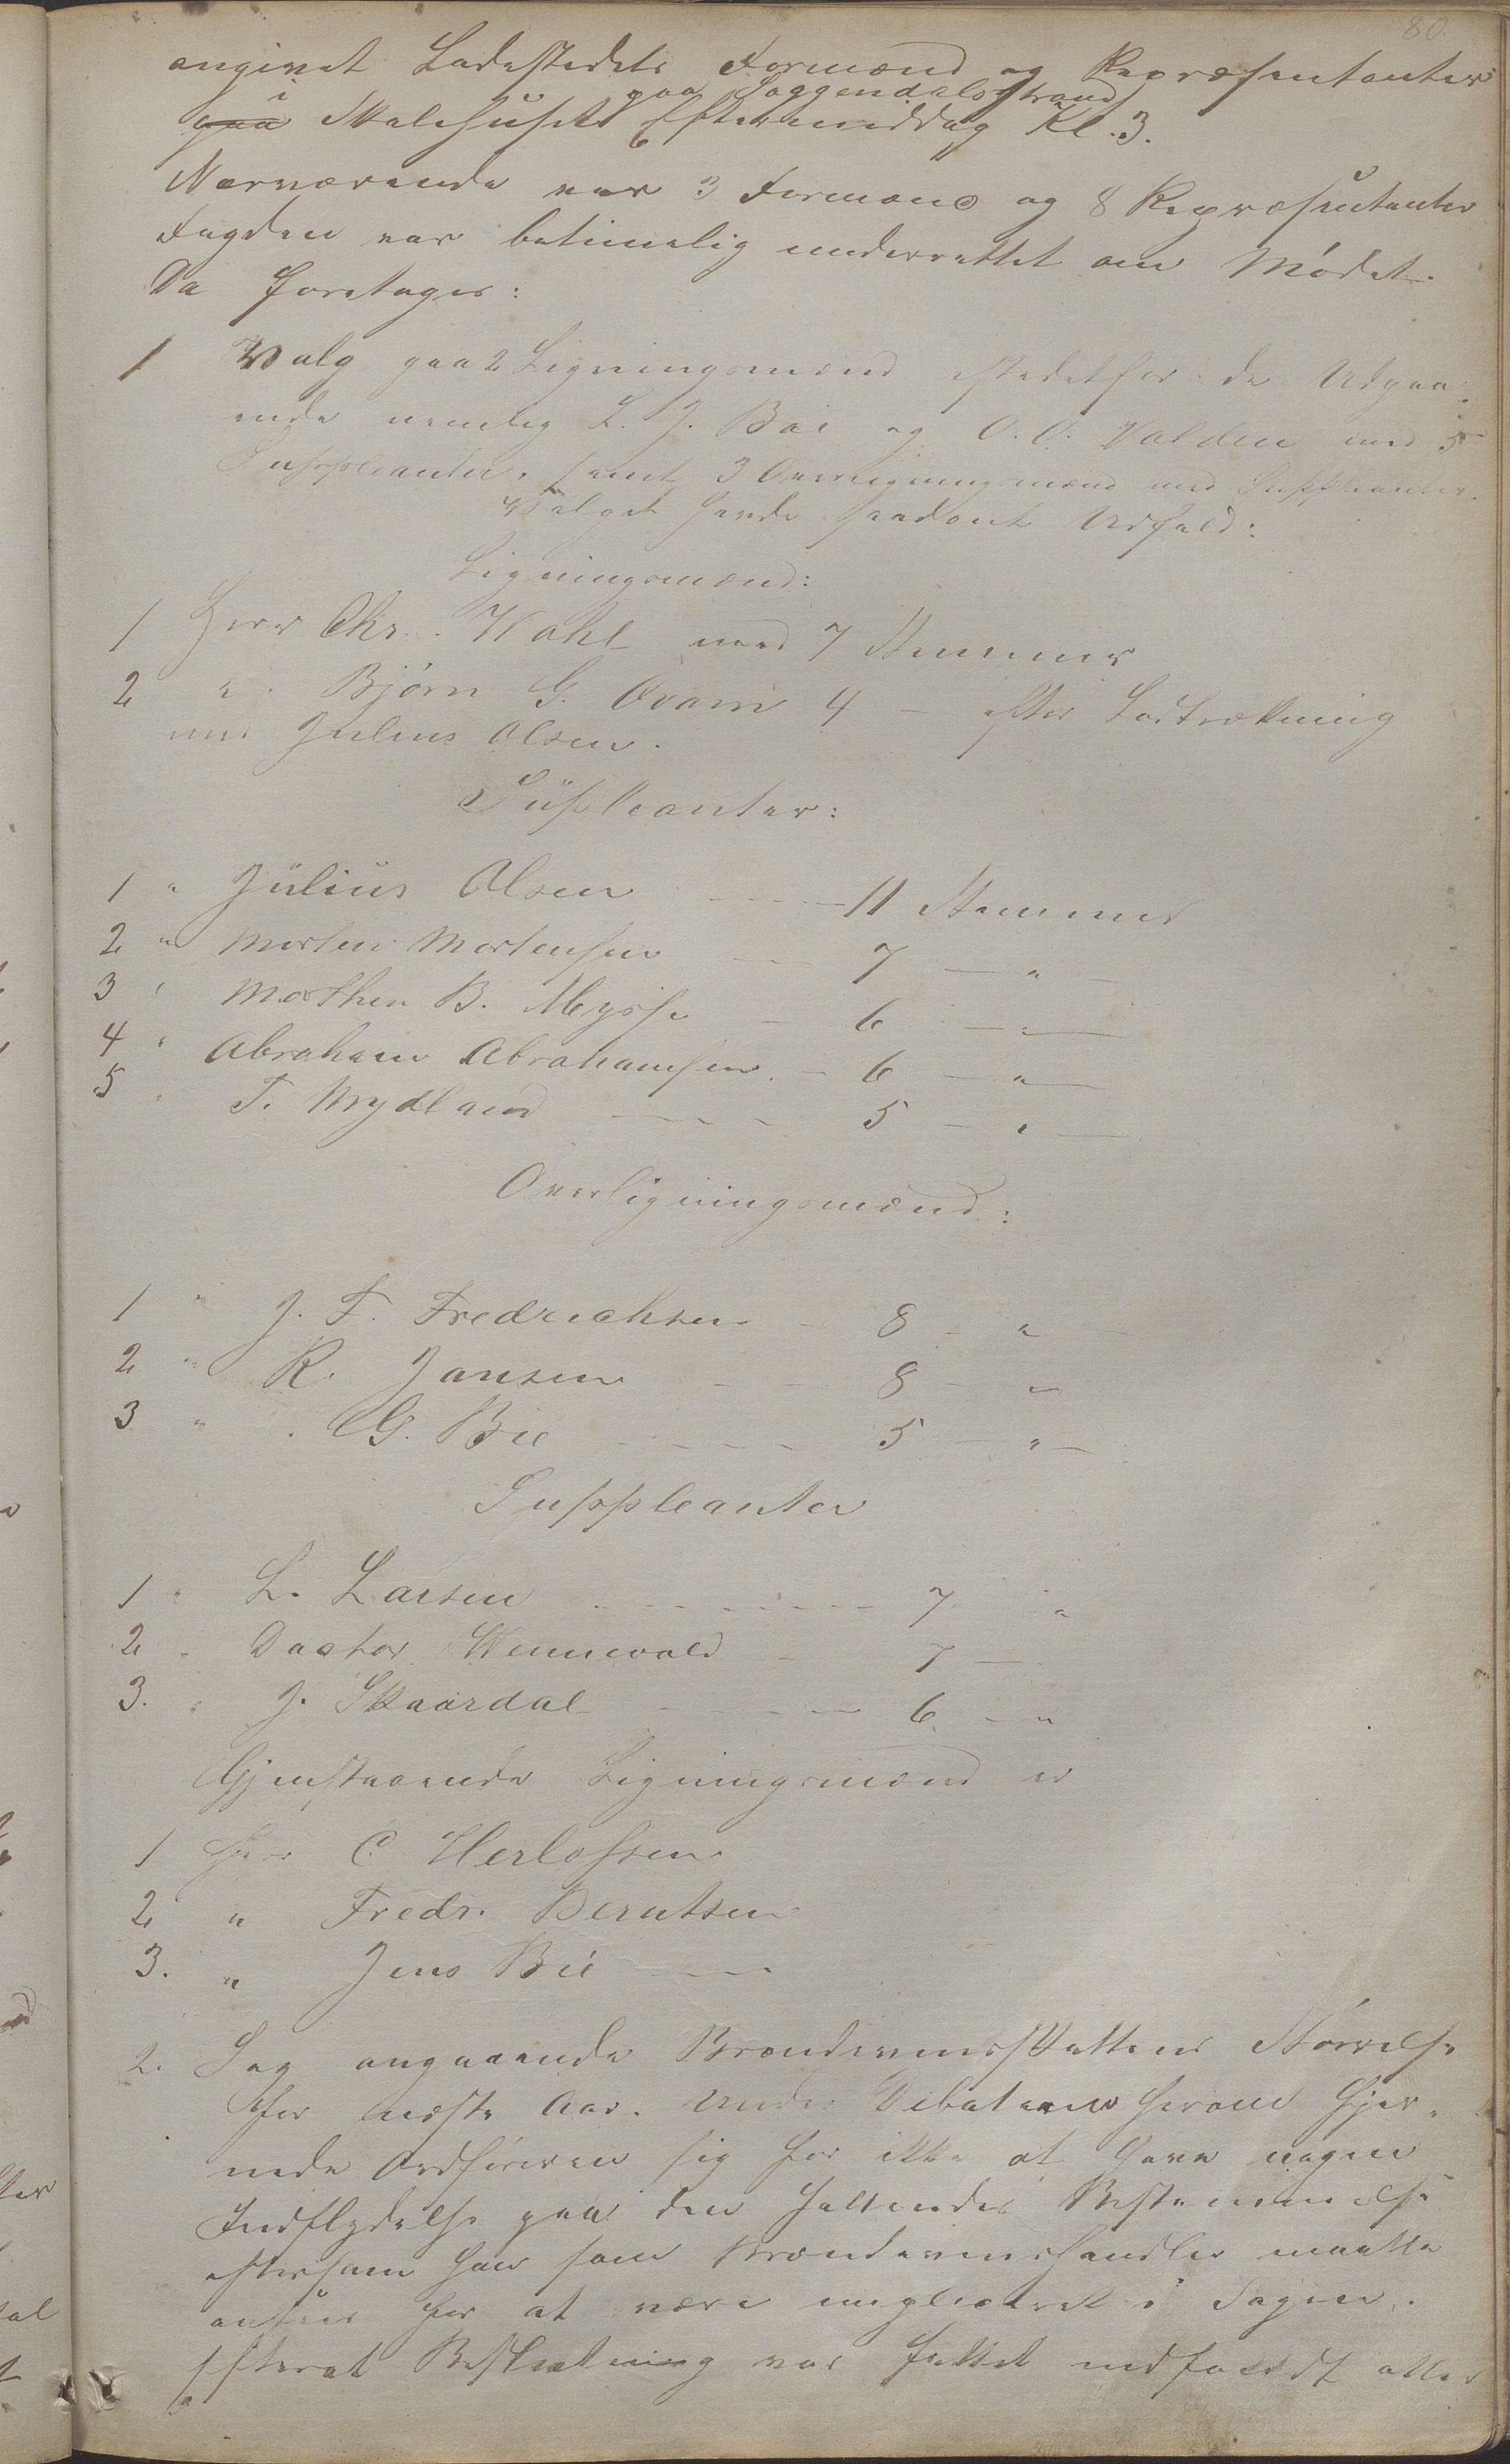 80.
angivet Ladestedets Formænd og Repræsentanter
paa Soggendalsstrand
i Skolehuset Eftermiddag Kl. 3.
Nærværende var 3 Formænd og 8 Repræsentanter
Fogden var betimelig underrettet om Mødet.
Da foretages:
1 Valg paa 2 Ligningsmænd istedetfor de Udgaa-
ende nemlig L. J. Boe og O. O. Valden med 5
Suppleanter, samt 3 Overligningsmænd med Suppleanter.
Valget havde saadant Udfald:
Ligningsmænd:
1 Herr Chr. Wahl med 7 Stemmer
2 " Bjørn G. Ovam 4 — efter Lodtrækning
med Julius Olsen.
Supleanter:
1 " Julius Olsen 11 Stemmer
2 " Morten Mortensen 7 — " —
3 " Mathen B. Mysse 6 — " —
4 " Abraham Abrahamsen 6 — " —
5 " T. Mydland 5 — " —
Overligningsmænd:
1 " J. F. Fredrichsen 8 — "
2 " R. Jansen 8 — "
3 " G. Bie 5 — "
Suppleanter
1 " L. Larsen 7 "
2 " Doctor Wennevold 7 —
3. " J. Skaardal 6 — "
Gjenstaaende Ligningsmænd er
1 Herr C Herlofsen
2 " Fredr. Berntsen
3. " Jens Bie
2. Sag angaaende Brændevinsskattens Størrelse
for næste Aar. Under Debatterne herom fjer-
nede Ordføreren sig for ikke at have nogen
Indflydelse paa den fattendes Bestemmelse
eftersom han som Brændevinshandler maatte
ansees for at være impliceret i Sagen.
Efterat Beslutning var fattet indfandt atter